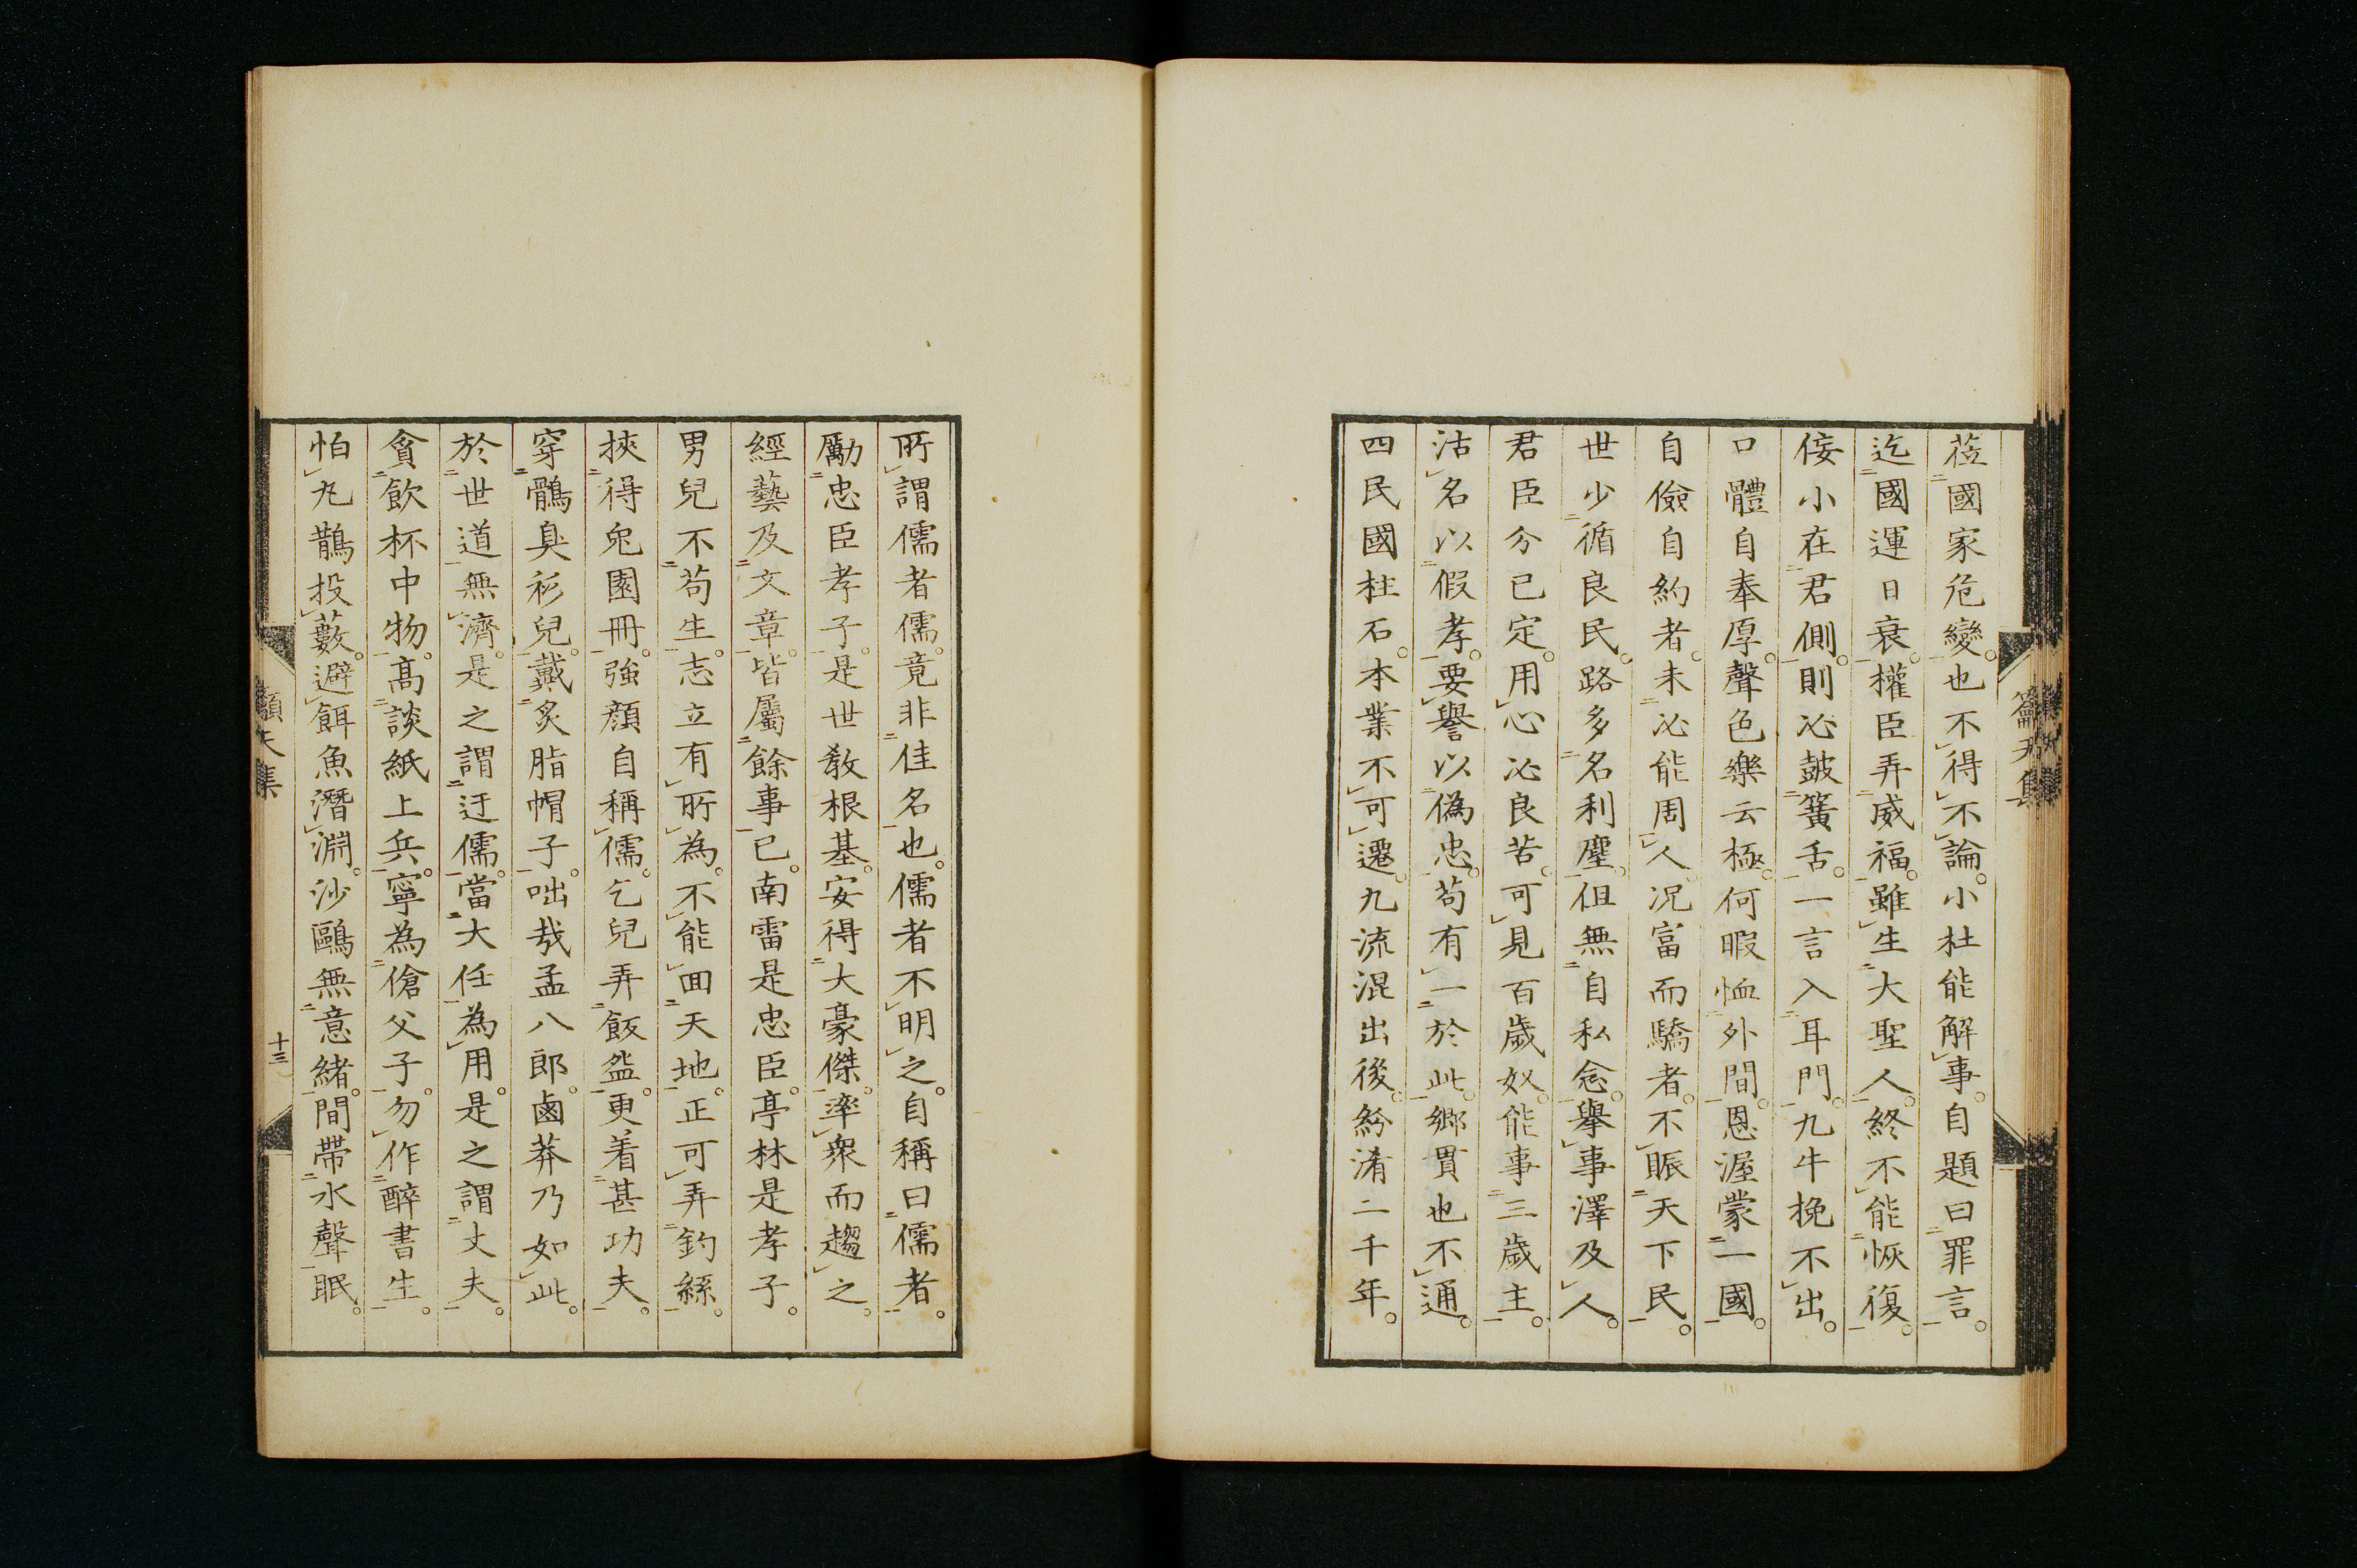 蒞國家危變也不得不論小杜能解事自題曰罪言
迄國運日衰權臣弄威福雖生大聖人終不能恢復
佞小在君側則必鼓簧舌一言入耳門九牛挽不出
口體自奉厚聲色樂云極何暇恤外間恩渥蒙一國
自儉自約者未必能周人況富而驕者不賑天下民
世少循良民路多名利塵但無自私念擧事澤及人
君臣分已定用心必良苦可見百歲奴能事三歲主
沽名以假孝要譽以偽忠苟有一於此鄉貫也不通
四民國柱石本業不可遷九流混出後紛淆二千年
所謂儒者儒竟非佳名也儒者不明之自稱曰儒者
勵忠臣孝子是世教根基安得大豪傑率衆而趨之
經藝及文章皆屬餘事已南雷是忠臣亭林是孝子
男兒不苟生志立有所為不能回天地正可弄釣絲
挾得兔園冊強顏自稱儒乞兒弄飯盌更着甚功夫
穿鶻臭衫兒戴炙脂帽子咄哉孟八郎鹵莽乃如此
於世道無濟是之謂迂儒當大任為用是之謂丈夫
貪飲杯中物高談紙上兵寧為傖父子勿作醉書生
怕丸鵲投藪避餌魚潛淵沙鷗無意緒間帶水聲眠
十三